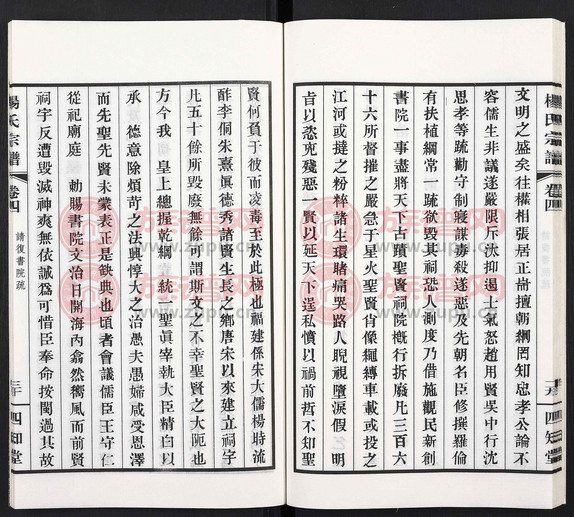 文明之盛矣往權相張居正耑擅朝綱罔知忠孝公論不
容儒生非議遂嚴限斥汰抑遏士氣怒趙用賢吳中行沈
思孝等疏勸守制寢謀毒殺遂惡及先朝名臣修撰羅倫
有扶植綱常一疏欲毀其祠恐人測度乃借施觀民新創
書院一事盡將天下古蹟聖賢祠院槪行拆廢凡三百六
十六所督摧之嚴急于星火聖賢肖像繩縛車載或投之
江河或撻之粉粹諸生環睹痛哭路人睨視墮淚假名明
旨以恣兇殘惡一賢以延天下逞私憤以禍前哲不知聖
楊氏宗譜
卷四
四知堂
賢何負于彼而凌毒至於此極也福建係宋大儒楊時流
酢李侗朱熹眞德秀諸賢生長之鄉唐宋以來建立祠宇
凡五十餘所毀廢無餘可謂斯文之不幸聖賢之大阨也
方今我 皇上總握乾綱一統聖眞宰執大臣精白以
承 德意除煩苛之法興惇大之治愚夫愚婦咸受恩澤
而先聖先賢未業表正是缺典也頃者會議儒臣王守仁
從祀廟庭 勅賜書院文治日開海內翕然嚮風而前賢
祠宇反遭毀滅神爽無依誠爲可惜臣奉命按閩過其故
楊氏宗譜
卷四
請復書院疏
三十
四知堂
族譜網
www.zupu.cn